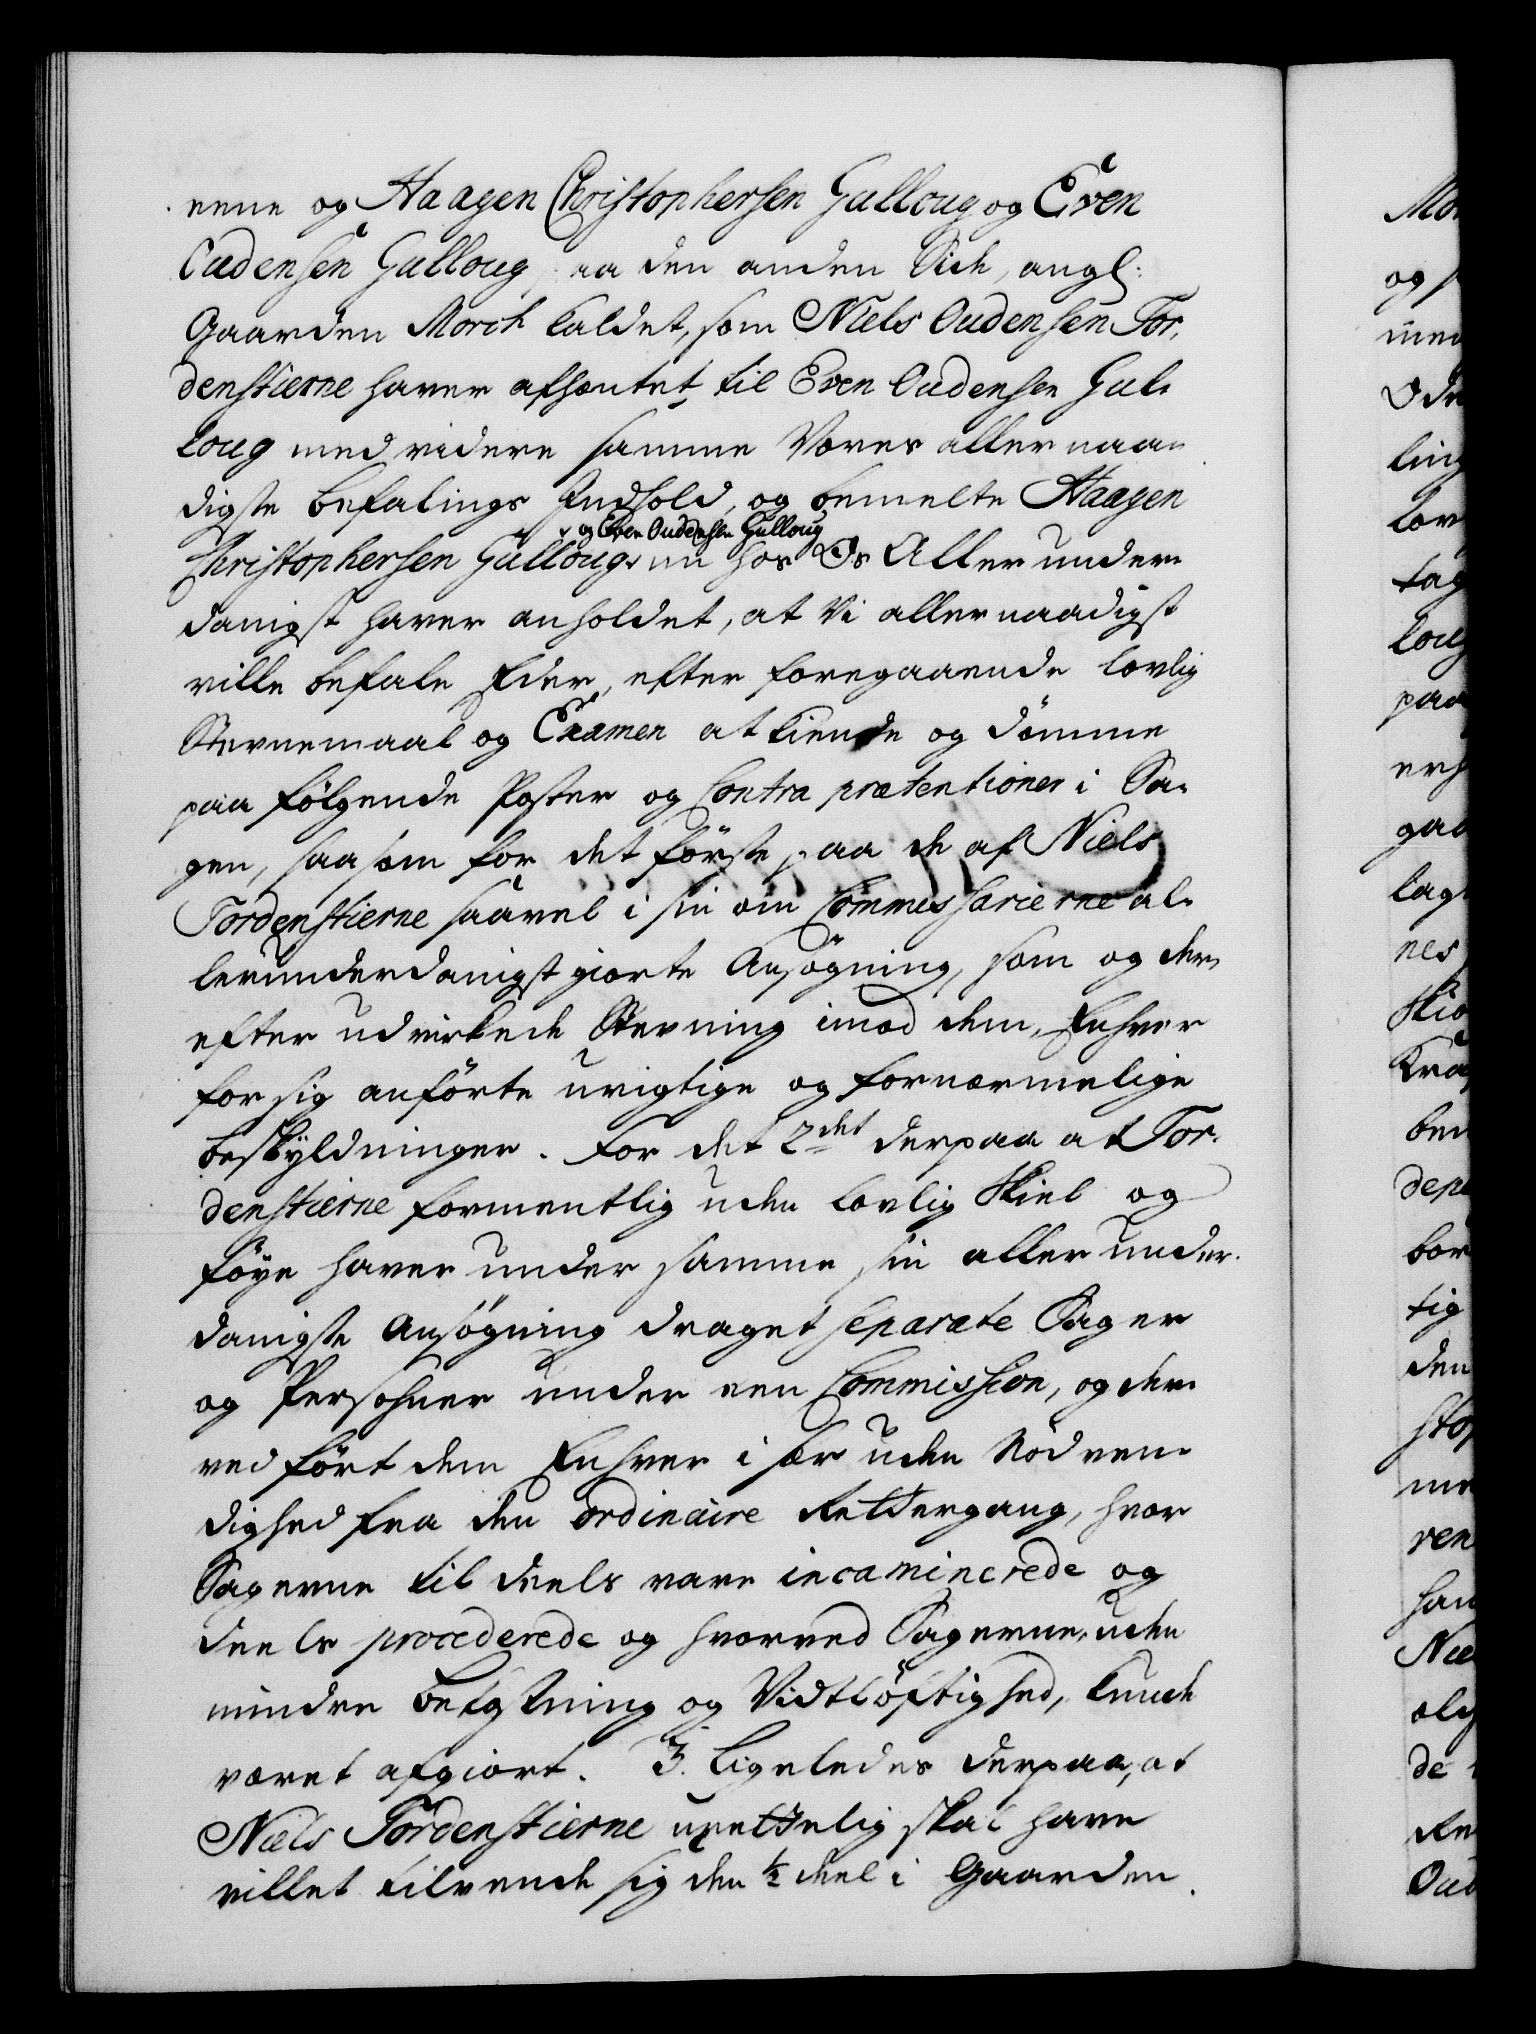 eene og Haagen Christophersen Gulloug og Even
Oudensen Gulloug paa den anden Side, angl:
Gaarden Morch kaldet, som Niels Oudensen Tor,
denstierne haver afhæntet til Even Oudensen Gul,
loug med videre samme Vores allernaa,
digste Befalings Indhold, og bemelte Haagen
og Even Oudensen Gulloug
Christophersen Gulloug nu hos Os Allerunder,
danigst haver anholdet, at Vi allernaadigst
ville befale Eder, efter foregaaende lovlig
Stevnemaal og Examen at kiende og dömme
paa fölgende Poster og Contra prætentioner i Sa,
gen, saasom for det förste paa de af Niels
Tordenstierne saavel i sin om Commissarierne al,
lerunderdanigst giorte Ansögning, som og der,
efter udvirkede Stevning imod dem, Enhver
for sig anförte urigtige og fornærmelige
beskyldninger. For det 2det derpaa at Tor,
denstierne formentlig uden lovlig Skiel og
föye haver under samme sin allerunder,
danigste Ansögning draget separate Sager
og Persohner under een Commission, og der,
ved fört dem Enhver i sær uden Nödven,
dighed fra den ordinaire Rettergang, hvor
Sagerne til deels vare incaminerede og
deels procederede og hvorved Sagerne, uden
mindre bekostning og Vidtlöftighed, kunde
været afgiort. 3. Ligeledes derpaa, at
Niels Tordenstierne urettelig skal have
villet tilvende sig den ½ deel i Gaarden